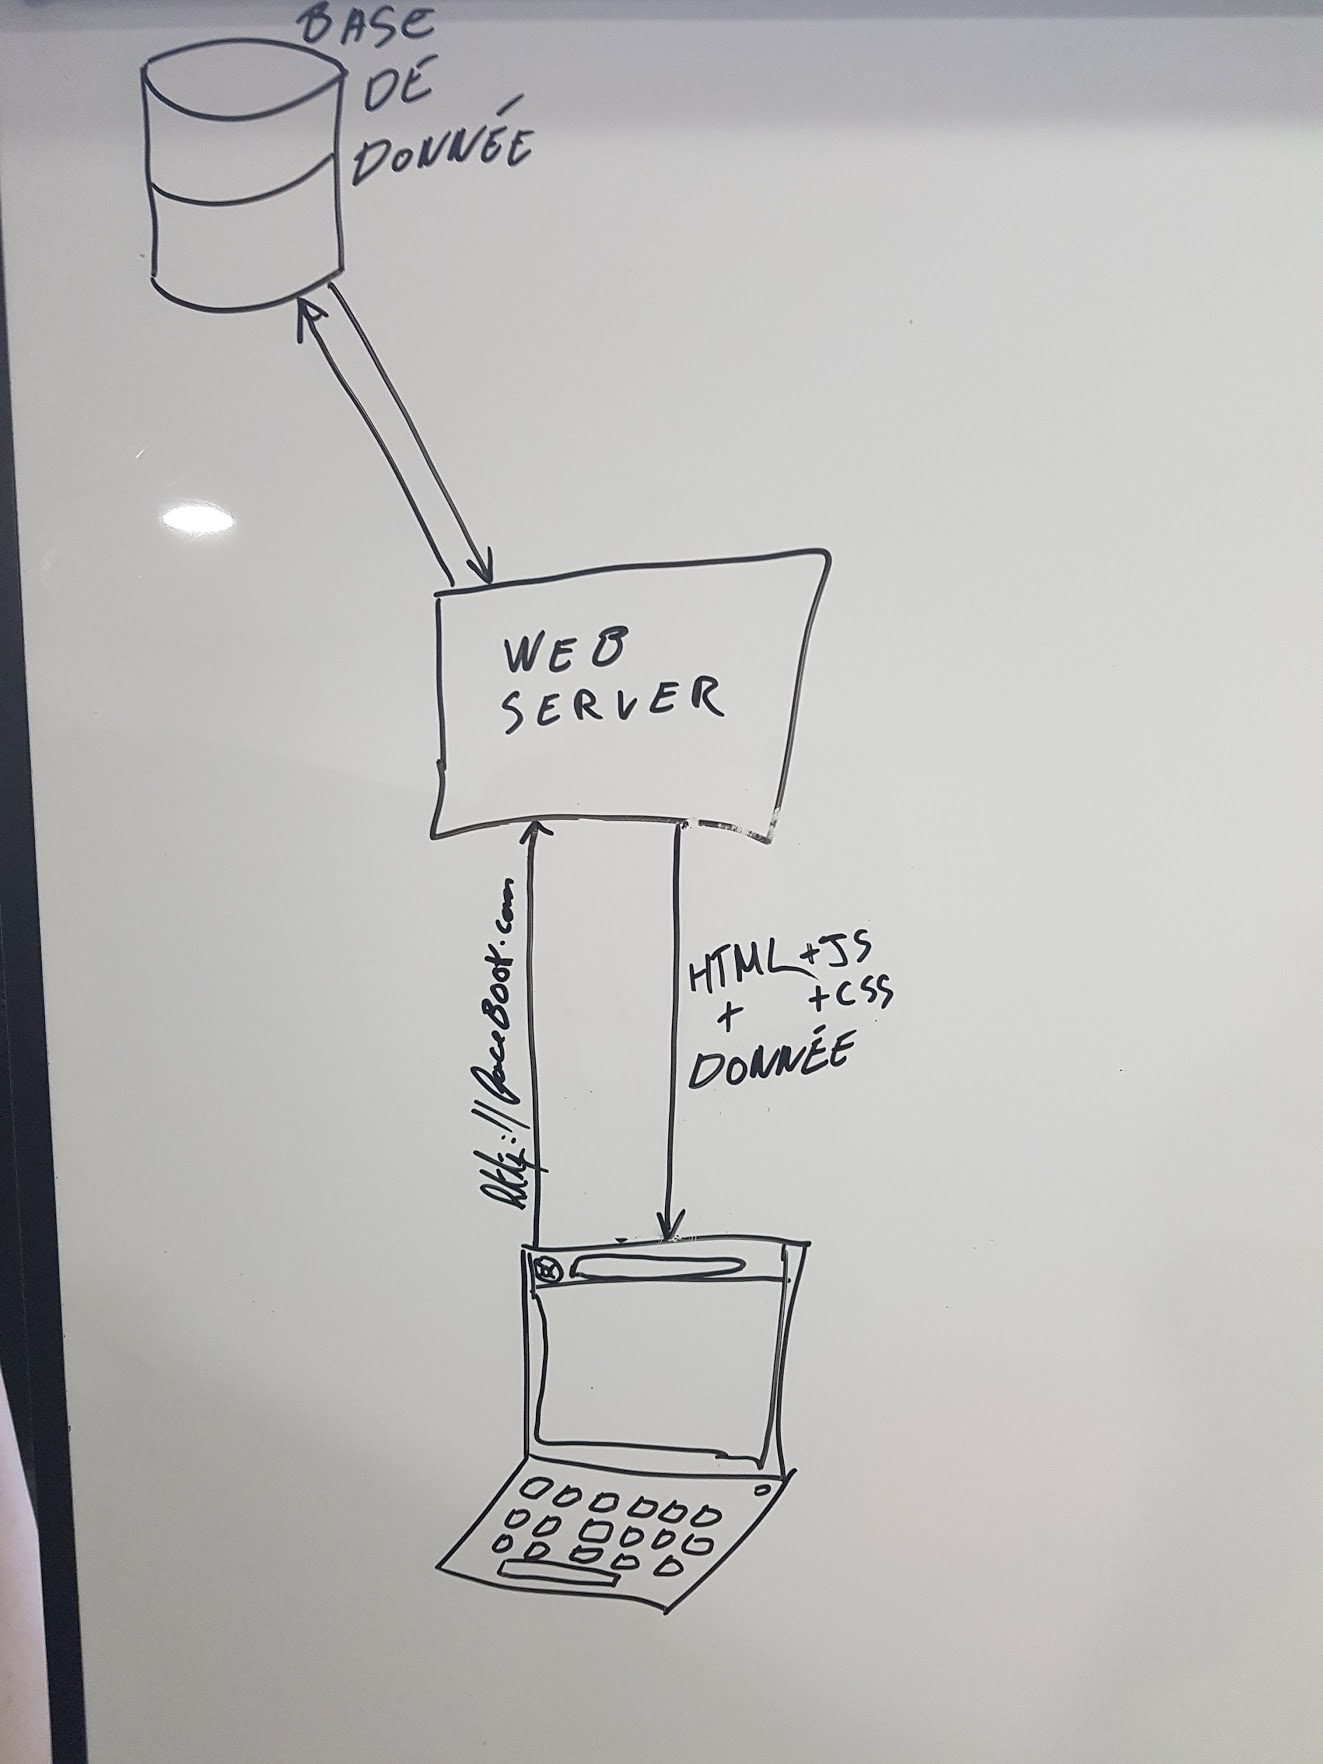 BASE
DE
DONNÉE
WEB
SERVER
http://faceBook.com
HTML+JS
+ +CSS
DONNÉE